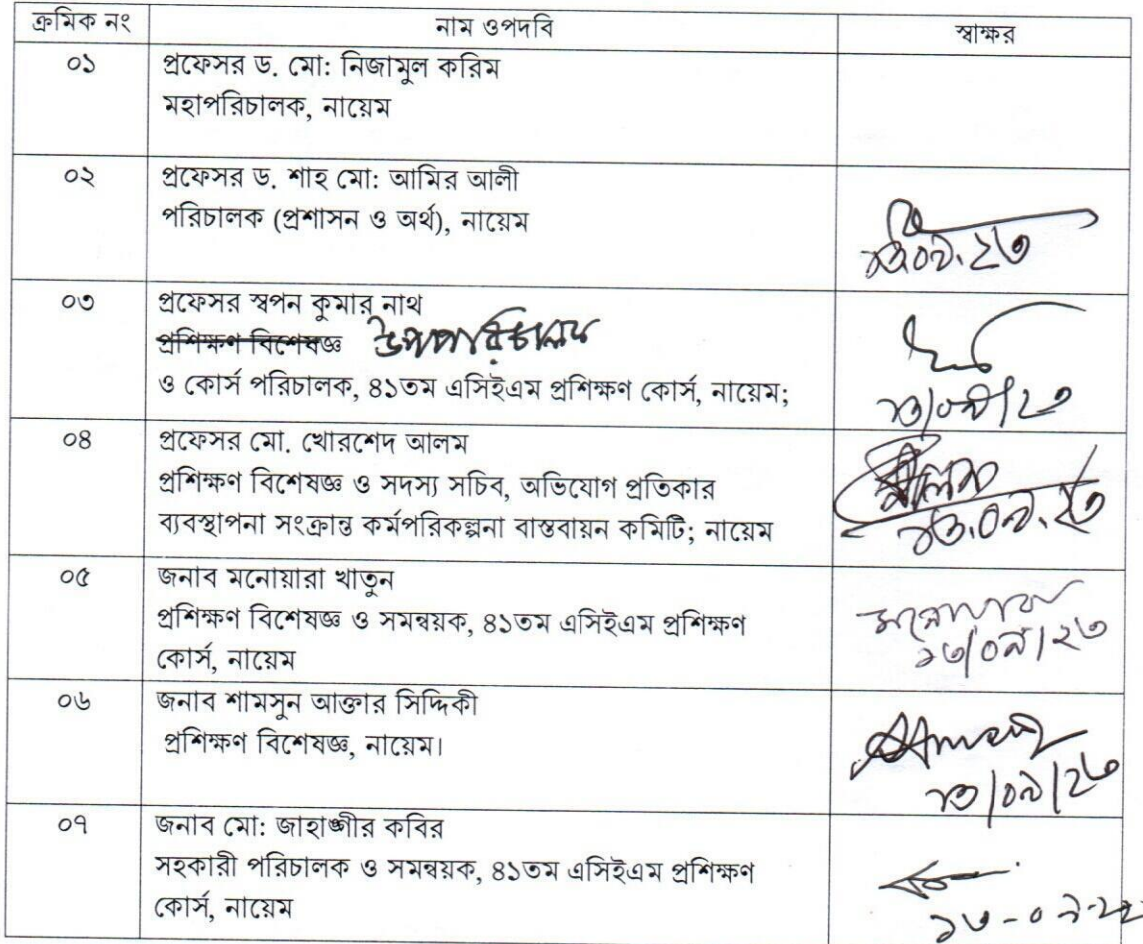 ক্রমিক নং নাম ওপদবি স্বাক্ষর
০১ প্রফেসর ড. মো: নিজামুল করিম
মহাপরিচালক, নায়েম
০২ প্রফেসর ড. শাহ মো: আমির আলী
পরিচালক (প্রশাসন ও অর্থ), নায়েম
১৩.০৯.২৩
০৩ প্রফেসর স্বপন কুমার নাথ
প্রশিক্ষণ বিশেষজ্ঞ উপপরিচালক
ও কোর্স পরিচালক, ৪১তম এসিইএম প্রশিক্ষণ কোর্স, নায়েম;
১৩/০৯/২৩
০৪ প্রফেসর মো. খোরশেদ আলম
প্রশিক্ষণ বিশেষজ্ঞ ও সদস্য সচিব, অভিযোগ প্রতিকার
ব্যবস্থাপনা সংক্রান্ত কর্মপরিকল্পনা বাস্তবায়ন কমিটি; নায়েম
১৩.০৯.২৩
০৫ জনাব মনোয়ারা খাতুন
প্রশিক্ষণ বিশেষজ্ঞ ও সমন্বয়ক, ৪১তম এসিইএম প্রশিক্ষণ
কোর্স, নায়েম
মনোয়ারা
১৩/০৯/২৩
০৬ জনাব শামসুন আক্তার সিদ্দিকী
প্রশিক্ষণ বিশেষজ্ঞ, নায়েম।
১৩/০৯/২৩
০৭ জনাব মো: জাহাঙ্গীর কবির
সহকারী পরিচালক ও সমন্বয়ক, ৪১তম এসিইএম প্রশিক্ষণ
কোর্স, নায়েম
১৩-০৯-২৩